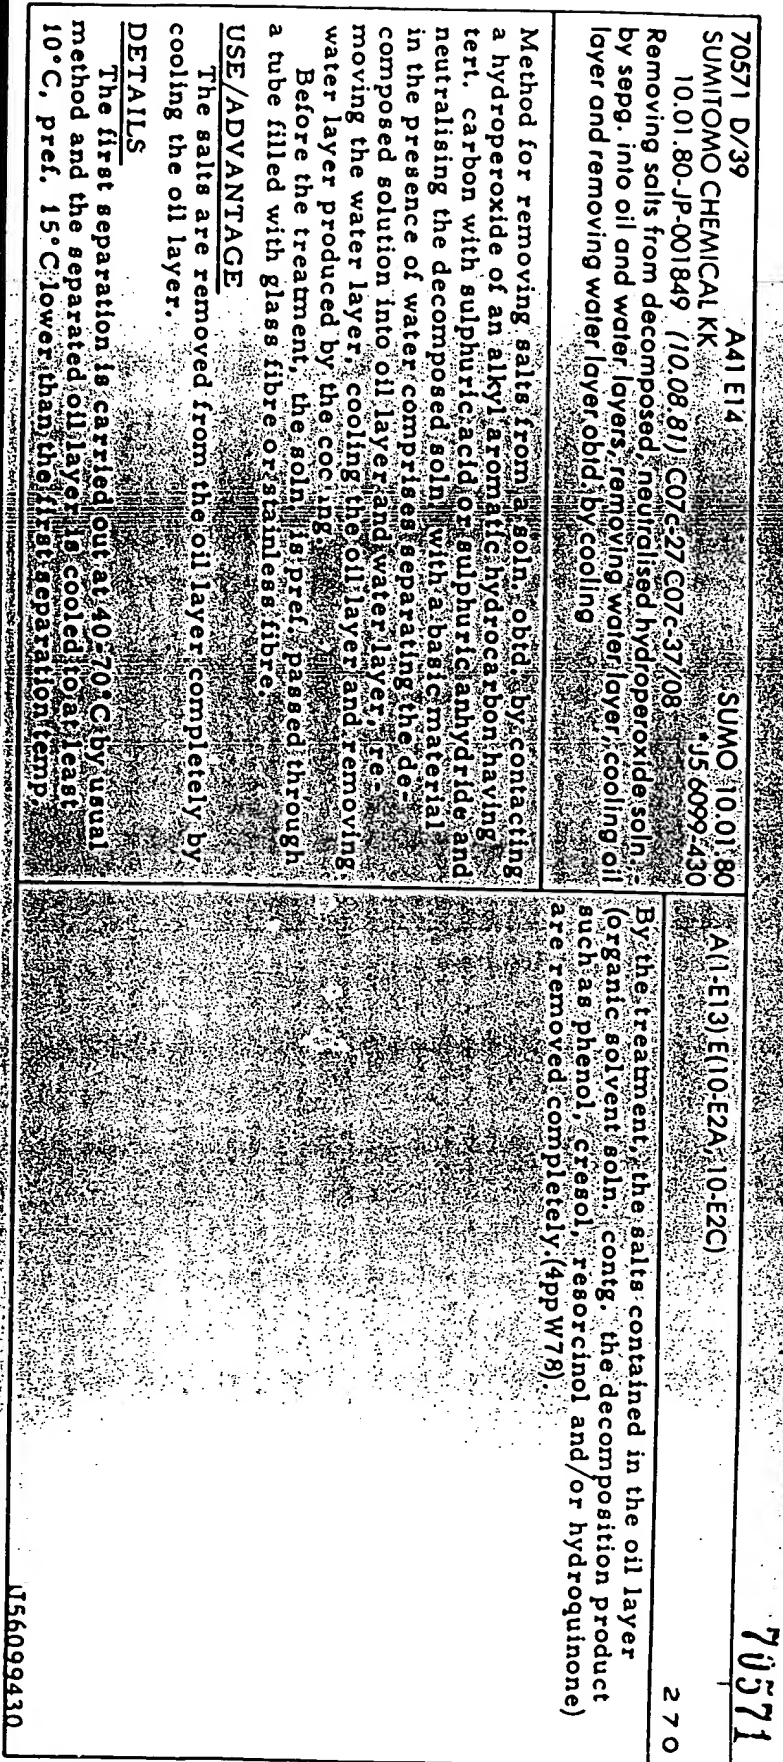 70571
70571 D/39 A41 E14 SUMO 10.01.80
SUMITOMO CHEMICAL KK *J5 6099-430
10.01.80-JP-001849 (10.08.81) C07c-27 C07c-37/08
Removing salts from decomposed, neutralised hydroperoxide soln. -
by sepg. into oil and water layers, removing water layer, cooling oil
layer and removing water layer obtd. by cooling
A(1-E13) E(10-E2A, 10-E2C)
270
Method for removing salts from a soln. obtd. by contacting
a hydroperoxide of an alkyl aromatic hydrocarbon having
tert. carbon with sulphuric acid or sulphuric anhydride and
neutralising the decomposed soln. with a basic material
in the presence of water comprises separating the de-
composed solution into oil layer and water layer, re-
moving the water layer, cooling the oil layer and removing
water layer produced by the cooling.
Before the treatment, the soln. is pref. passed through
a tube filled with glass fibre or stainless fibre.
USE/ADVANTAGE
The salts are removed from the oil layer completely by
cooling the oil layer.
DETAILS
The first separation is carried out at 40-70°C by usual
method and the separated oil layer is cooled to at least
10°C, pref. 15°C lower than the first separation temp.
By the treatment, the salts contained in the oil layer
(organic solvent soln. contg. the decomposition product
such as phenol, cresol, resorcinol and/or hydroquinone)
are removed completely.(4ppW78).
J56099430